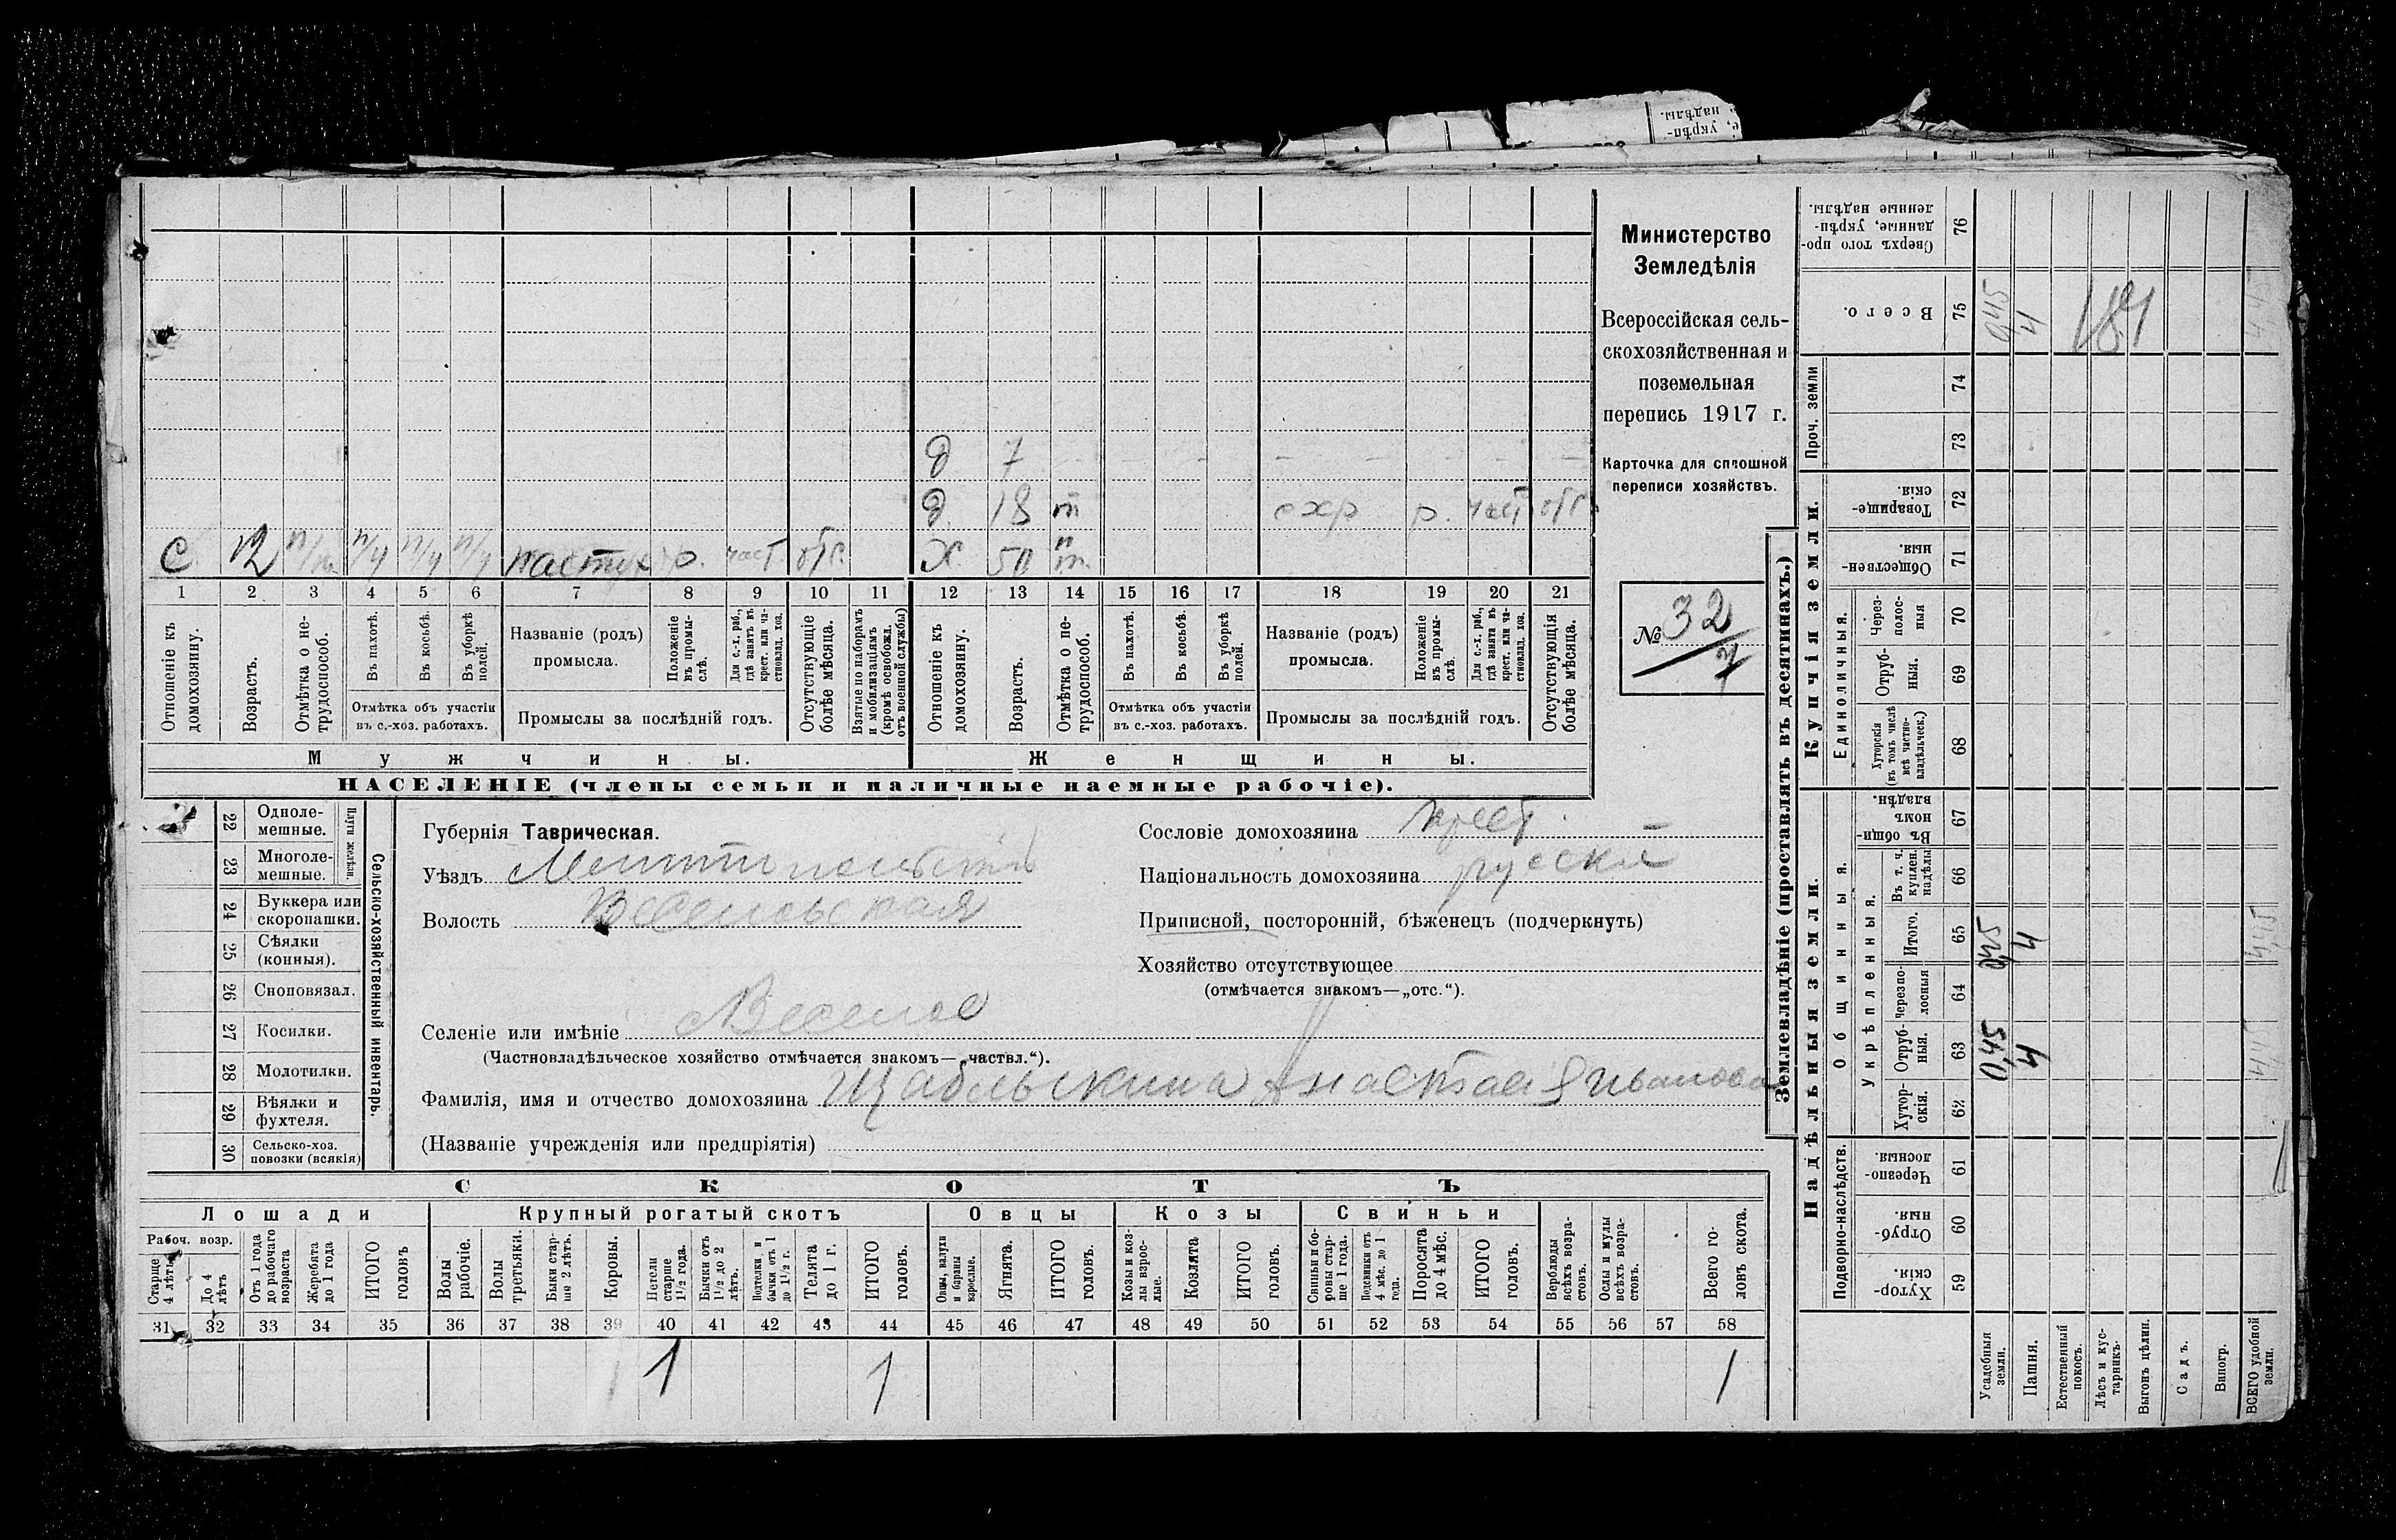 укрѣп-
надѣлы.
Министерство
Земледѣлія
Всероссійская сель-
скохозяйственная и
поземельная
перепись 1917 г.
Карточка для сплошной
переписи хозяйствъ.
№ 32
д 7
д 18 т охр р. част отс
С 12 п/т п/ч п/ч п/ч пастух р. част. отс. Х 50 п т.
1 2 3 4 5 6 7 8 9 10 11 12 13 14 15 16 17 18 19 20 21
Отношеніе къ домохозяину.
Возрастъ.
Отмѣтка о не-трудоспособ.
Въ пахотѣ.
Въ косьбѣ.
Въ уборкѣ полей.
Отмѣтка объ участіи
въ с.-хоз. работахъ.
Названіе (родъ)
промысла.
Положеніе въ промы-слѣ.
Для с.-х. раб., гдѣ занятъ въ крест. или ча-стновлад. хоз.
Промыслы за послѣдній годъ.
Отсутствующіе болѣе мѣсяца.
Взятые по наборамъ и мобилизаціямъ (кромѣ освобожд. отъ военной службы)
Отношеніе къ домохозяину.
Возрастъ.
Отмѣтка о не-трудоспособ.
Въ пахотѣ.
Въ косьбѣ.
Въ уборкѣ полей.
Отмѣтка объ участіи
въ с.-хоз. работахъ.
Названіе (родъ)
промысла.
Положеніе въ промы-слѣ.
Для с.-х. раб., гдѣ занята въ крест. или ча-стновлад. хоз.
Промыслы за послѣдній годъ.
Отсутствующія болѣе мѣсяца.
Мужчины. Женщины.
НАСЕЛЕНІЕ (члены семьи и наличные наемные рабочіе).
22 Одноле-мешные.
23 Многоле-мешные.
Плуги желѣзн.
24 Буккера или скоропашки.
25 Сѣялки (конныя).
26 Сноповязал.
27 Косилки.
28 Молотилки.
29 Вѣялки и фухтеля.
30 Сельско-хоз. повозки (всякія)
Сельско-хозяйственный инвентарь.
Губернія Таврическая.
Уѣздъ Мелитопольскій
Волость Веселовская
Селеніе или имѣніе Веселое
(Частновладѣльческое хозяйство отмѣчается знакомъ—„частвл.“).
Сословіе домохозяина крест.
Національность домохозяина русскі
Приписной, посторонній, бѣженецъ (подчеркнуть)
Хозяйство отсутствующее
(отмѣчается знакомъ—„отс.“).
Фамилія, имя и отчество домохозяина Щабельскина Анастасія Иванова
(Названіе учрежденія или предпріятія)
СКОТЪ
Лошади Крупный рогатый скотъ Овцы Козы Свиньи
Рабоч. возр.
Старше 4 лѣтъ
До 4 лѣтъ
Отъ 1 года до рабочаго возраста
Жеребята до 1 года
ИТОГО головъ
Волы рабочіе.
Волы третьяки.
Быки стар-ше 2 лѣтъ.
Коровы.
Нетели старше 1½ года.
Бычки отъ 1½ до 2 лѣтъ.
Подтелки и бычки отъ 1 до 1½ г.
Телята до 1 г.
ИТОГО головъ.
Овцы, валухи и бараны взрослые.
Ягнята.
ИТОГО головъ.
Козы и коз-лы взрос-лые.
Козлята
ИТОГО головъ.
Свиньи и бо-ровы стар-ше 1 года.
Подсвинки отъ 4 мѣс. до 1 года.
Поросята до 4 мѣс.
ИТОГО головъ.
Верблюды всѣхъ возра-стовъ.
Ослы и мулы всѣхъ возра-стовъ.
Всего го-ловъ скота.
31 32 33 34 35 36 37 38 39 40 41 42 43 44 45 46 47 48 49 50 51 52 53 54 55 56 57 58
1 1 1
Землевладѣніе (проставлять въ десятинахъ.)
Надѣльныя земли. Купчія земли. Проч. земли
Подворно-наслѣдств.
Общинныя.
Укрѣпленныя.
Единоличныя.
59 Хутор-скія.
60 Отруб-ныя.
61 Черезпо-лосныя.
62 Хутор-скія.
63 Отруб-ныя. 0,45 4 4,45
64 Черезпо-лосныя
65 Итого. 0,45 4 4,45
66 Въ т. ч. куплен. надѣлы
67 Въ общи-номъ владѣн.
68 Хуторскія (въ томъ числѣ всѣ частно-владѣльческ.)
69 Отруб-ныя.
70 Через-полос-ныя
71 Обществен-ныя.
72 Товарище-скія.
73
74
75 Всего. 0,45 4
76 Сверхъ того про-данные, укрѣп-ленные надѣлы.
Усадебныя земли.
Пашня.
Естественный покосъ.
Лѣсъ и кус-тарникъ.
Выгонъ цѣлин.
Садъ.
Виногр.
ВСЕГО удобной земли.